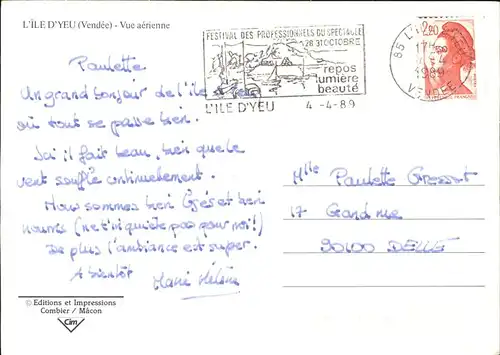 L'ÎLE D'YEU (Vendée) - Vue aérienne
FESTIVAL DES PROFESSIONNELS DU SPECTACLE
28 31 OCTOBRE
repos
lumière
beauté
L'ILE D'YEU 4 -4-89
85 L'I
17
4-4
1989
VENDEE
2,20
Paulette
Un grand bonjour de l'île d'Yeu
où tout se passe bien.
Ici il fait beau, bien que le
vent souffle continuellement.
Nous sommes bien logés et bien
nourris (ne t'inquiète pas pour moi!)
De plus l'ambiance est super.
A bientôt
Marie Hélène
Mlle Paulette
17 Grand rue
90100 DELLE
© Editions et Impressions
Combier / Mâcon
Cim